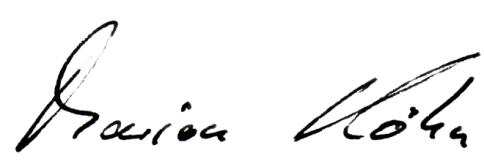 Marion Köhn